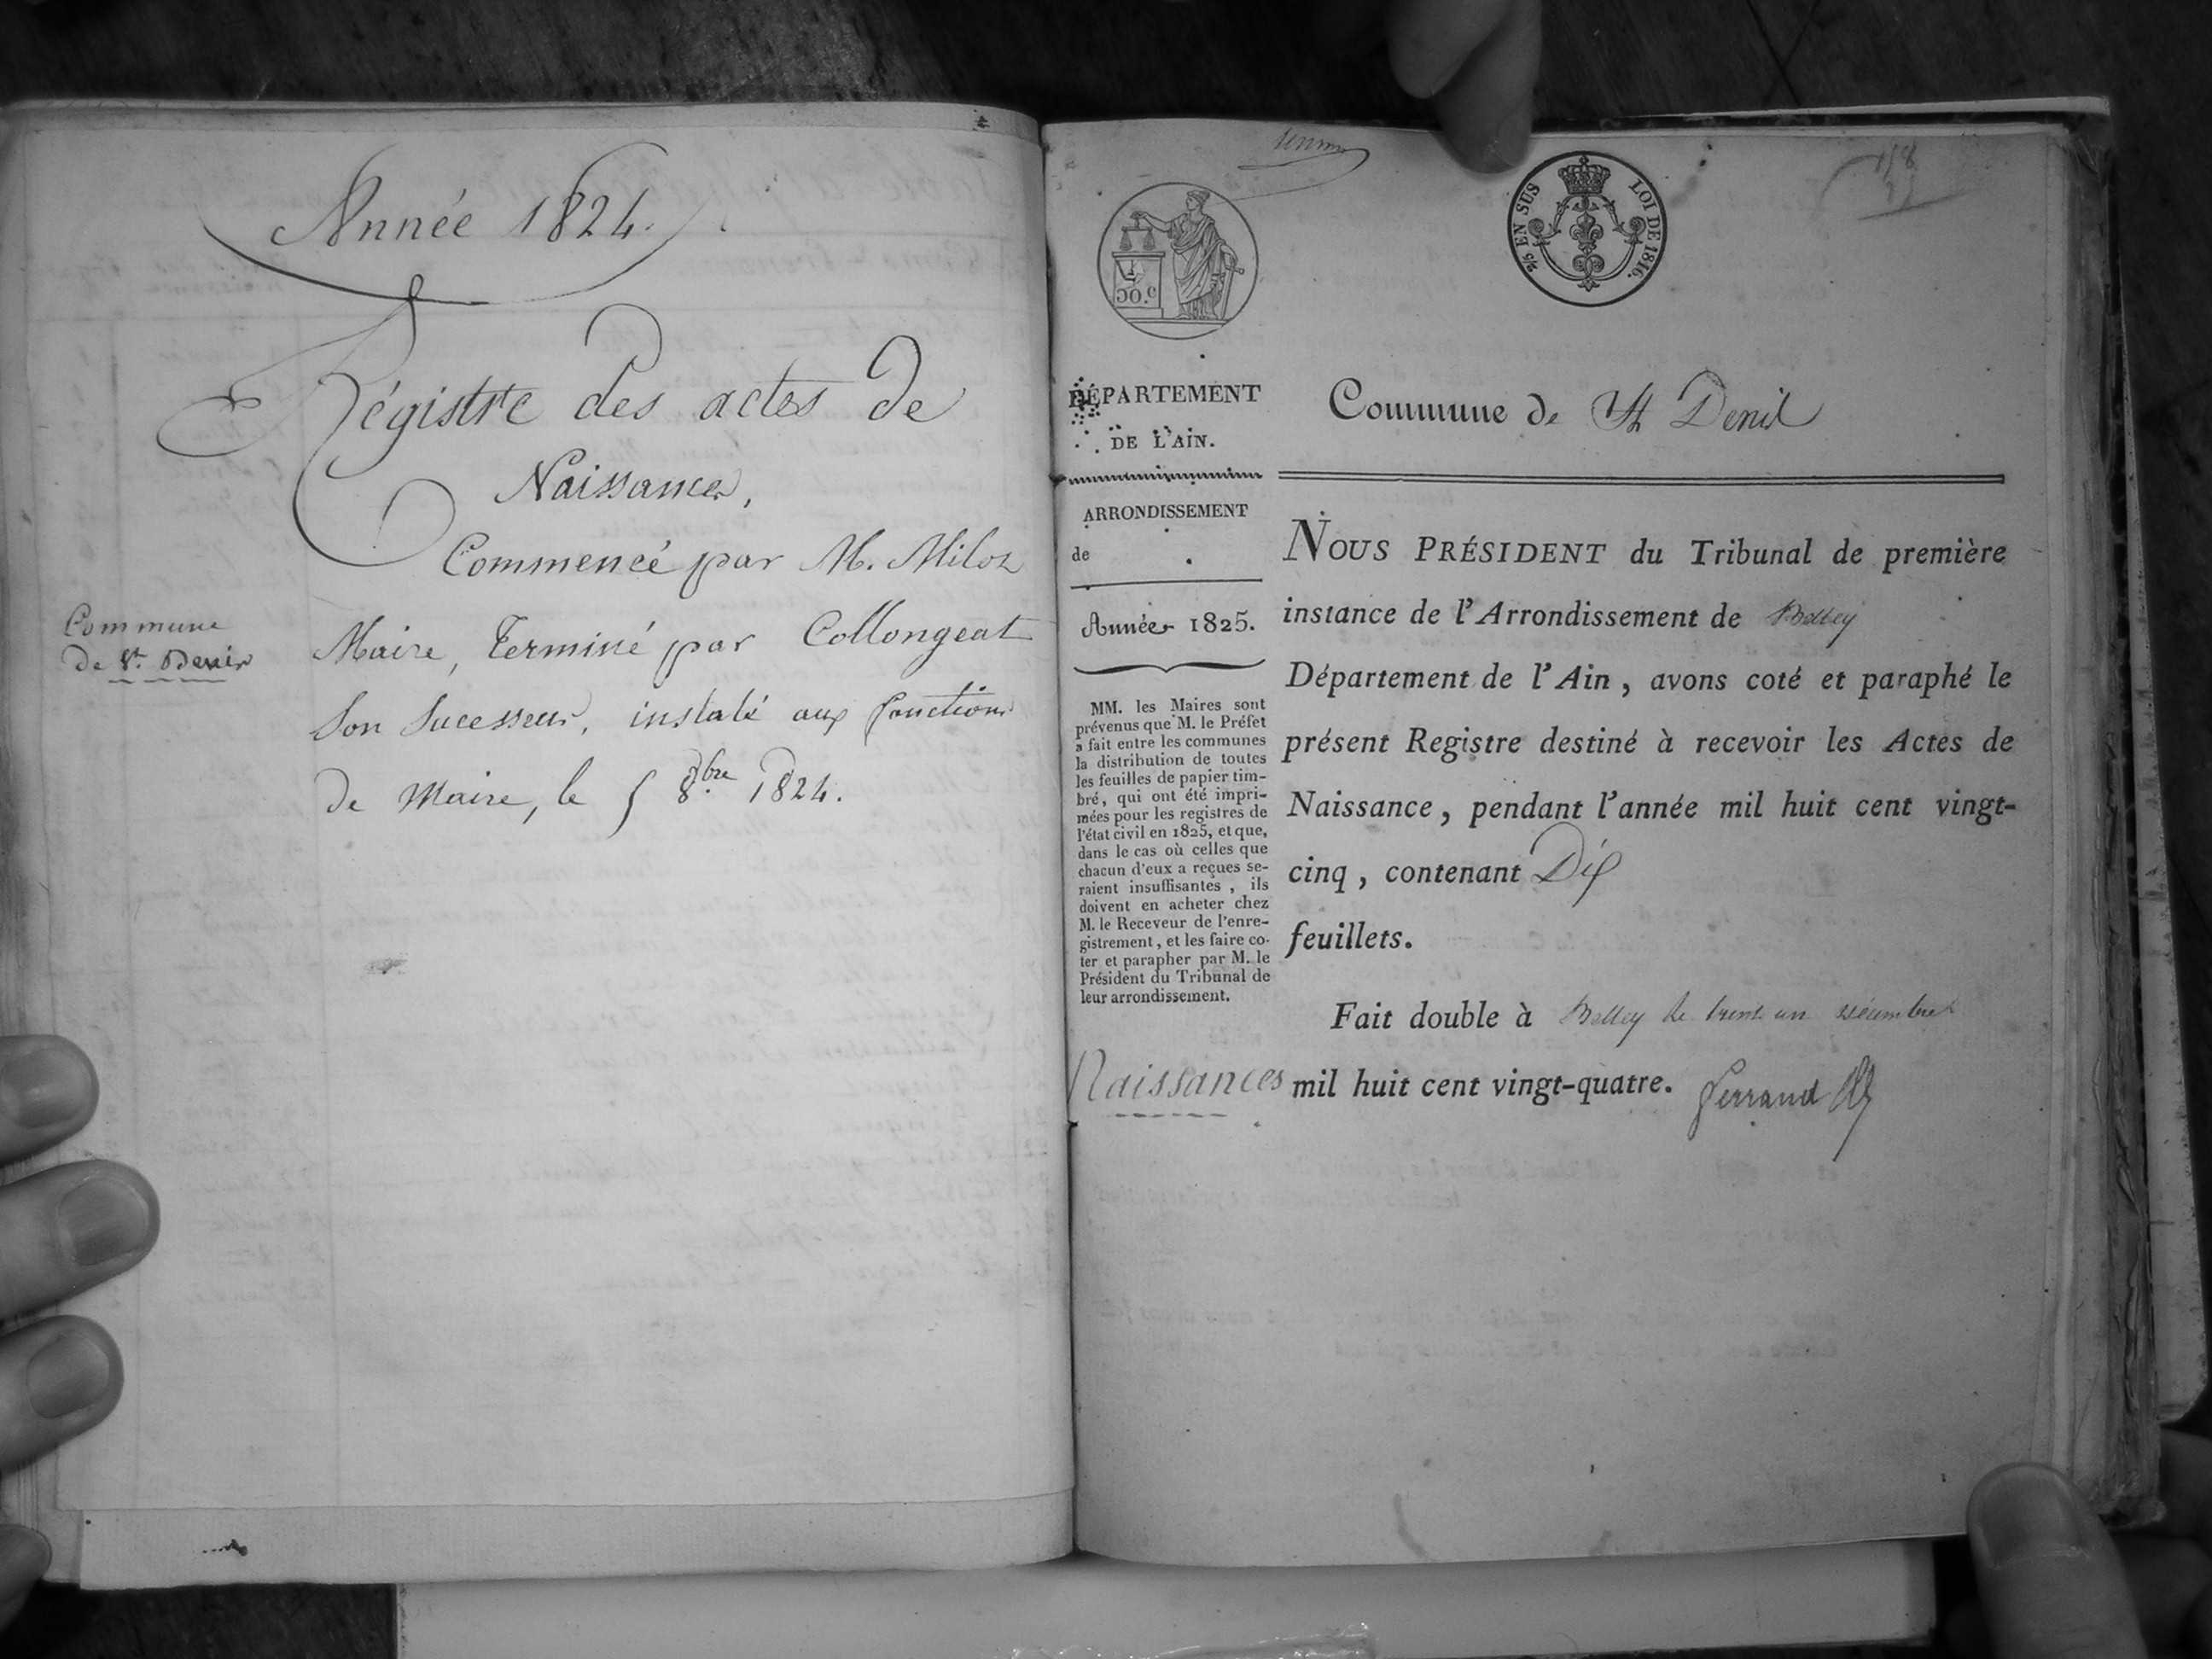 Année 1824.
Régistre des actes de
Naissances,
Commencé par M. Miloz
Maire, Terminé par Collongeat
Son Sucesseur, instalé aux fonctions
de Maire, le 5 8.bre 1824.
Commune
De St. Denis
50.c
5/5 EN SUS
LOI DE 1816.
DÉPARTEMENT
DE L'AIN.
ARRONDISSEMENT
de
Année 1825.
MM. les Maires sont
prévenus que M. le Préfet
a fait entre les communes
la distribution de toutes
les feuilles de papier tim-
bré, qui ont été impri-
mées pour les registres de
l'état civil en 1825, et que,
dans le cas où celles que
chacun d'eux a reçues se-
raient insuffisantes, ils
doivent en acheter chez
M. le Receveur de l'enre-
gistrement, et les faire co-
ter et parapher par M. le
Président du Tribunal de
leur arrondissement.
Naissances
Commune de St Denis
NOUS PRÉSIDENT du Tribunal de première
instance de l'Arrondissement de Belley
Département de l'Ain, avons coté et paraphé le
présent Registre destiné à recevoir les Actes de
Naissance, pendant l'année mil huit cent vingt-
cinq, contenant Dix
feuillets.
Fait double à Belley le trente un décembre
mil huit cent vingt-quatre. Ferrand